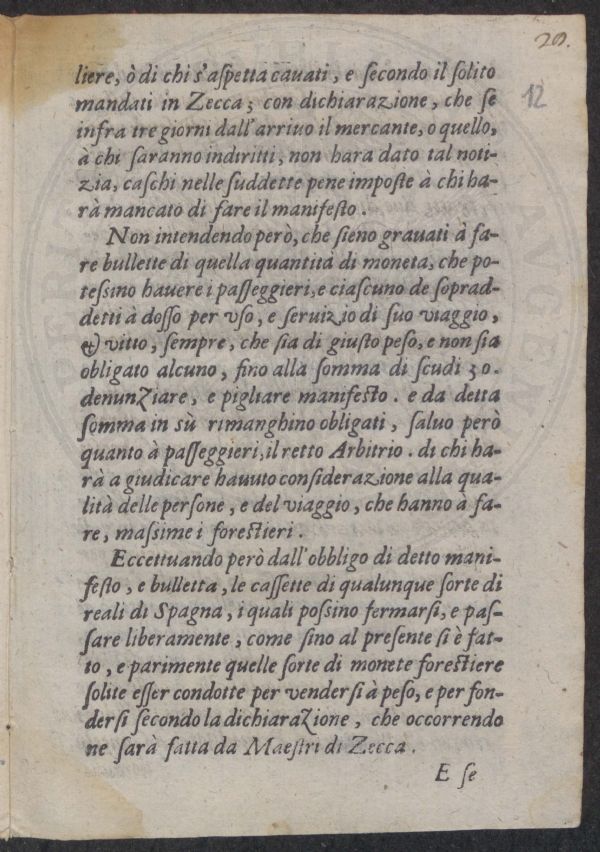 20.
12
liere, ò di chi s'aſpetta cauati, e ſecondo il ſolito
mandati in Zecca; con dichiarazione, che ſe
infra tre giorni dall'arriuo il mercante, o quello,
à chi ſaranno indiritti, non hara dato tal noti-
zia, caſchi nelle ſuddette pene impoſte à chi ha-
rà mancato di fare il manifeſto.
Non intendendo però, che ſieno grauati à fa-
re bullette di quella quantità di moneta, che po-
teſsino hauere i paſſeggieri, e ciaſcuno de ſoprad-
detti à doſſo per vſo, e ſeruizio di ſuo viaggio,
& vitto, ſempre, che ſia di giuſto peſo, e non ſia
obligato alcuno, fino alla ſomma di ſcudi 30.
denunziare, e pigliare manifeſto. e da detta
ſomma in sù rimanghino obligati, ſaluo però
quanto à paſſeggieri, il retto Arbitrio. di chi ha-
rà a giudicare hauuto conſiderazione alla qua-
lità delle perſone, e del viaggio, che hanno à fa-
re, maſsime i foreſtieri.
Eccettuando però dall'obbligo di detto mani-
feſto, e bulletta, le caſſette di qualunque ſorte di
reali di Spagna, i quali poſsino fermarſi, e paſ-
ſare liberamente, come ſino al preſente ſi è fat-
to, e parimente quelle ſorte di monete foreſtiere
ſolite eſſer condotte per venderſi à peſo, e per fon-
derſi ſecondo la dichiarazione, che occorrendo
ne ſarà fatta da Maeſtri di Zecca.
E ſe